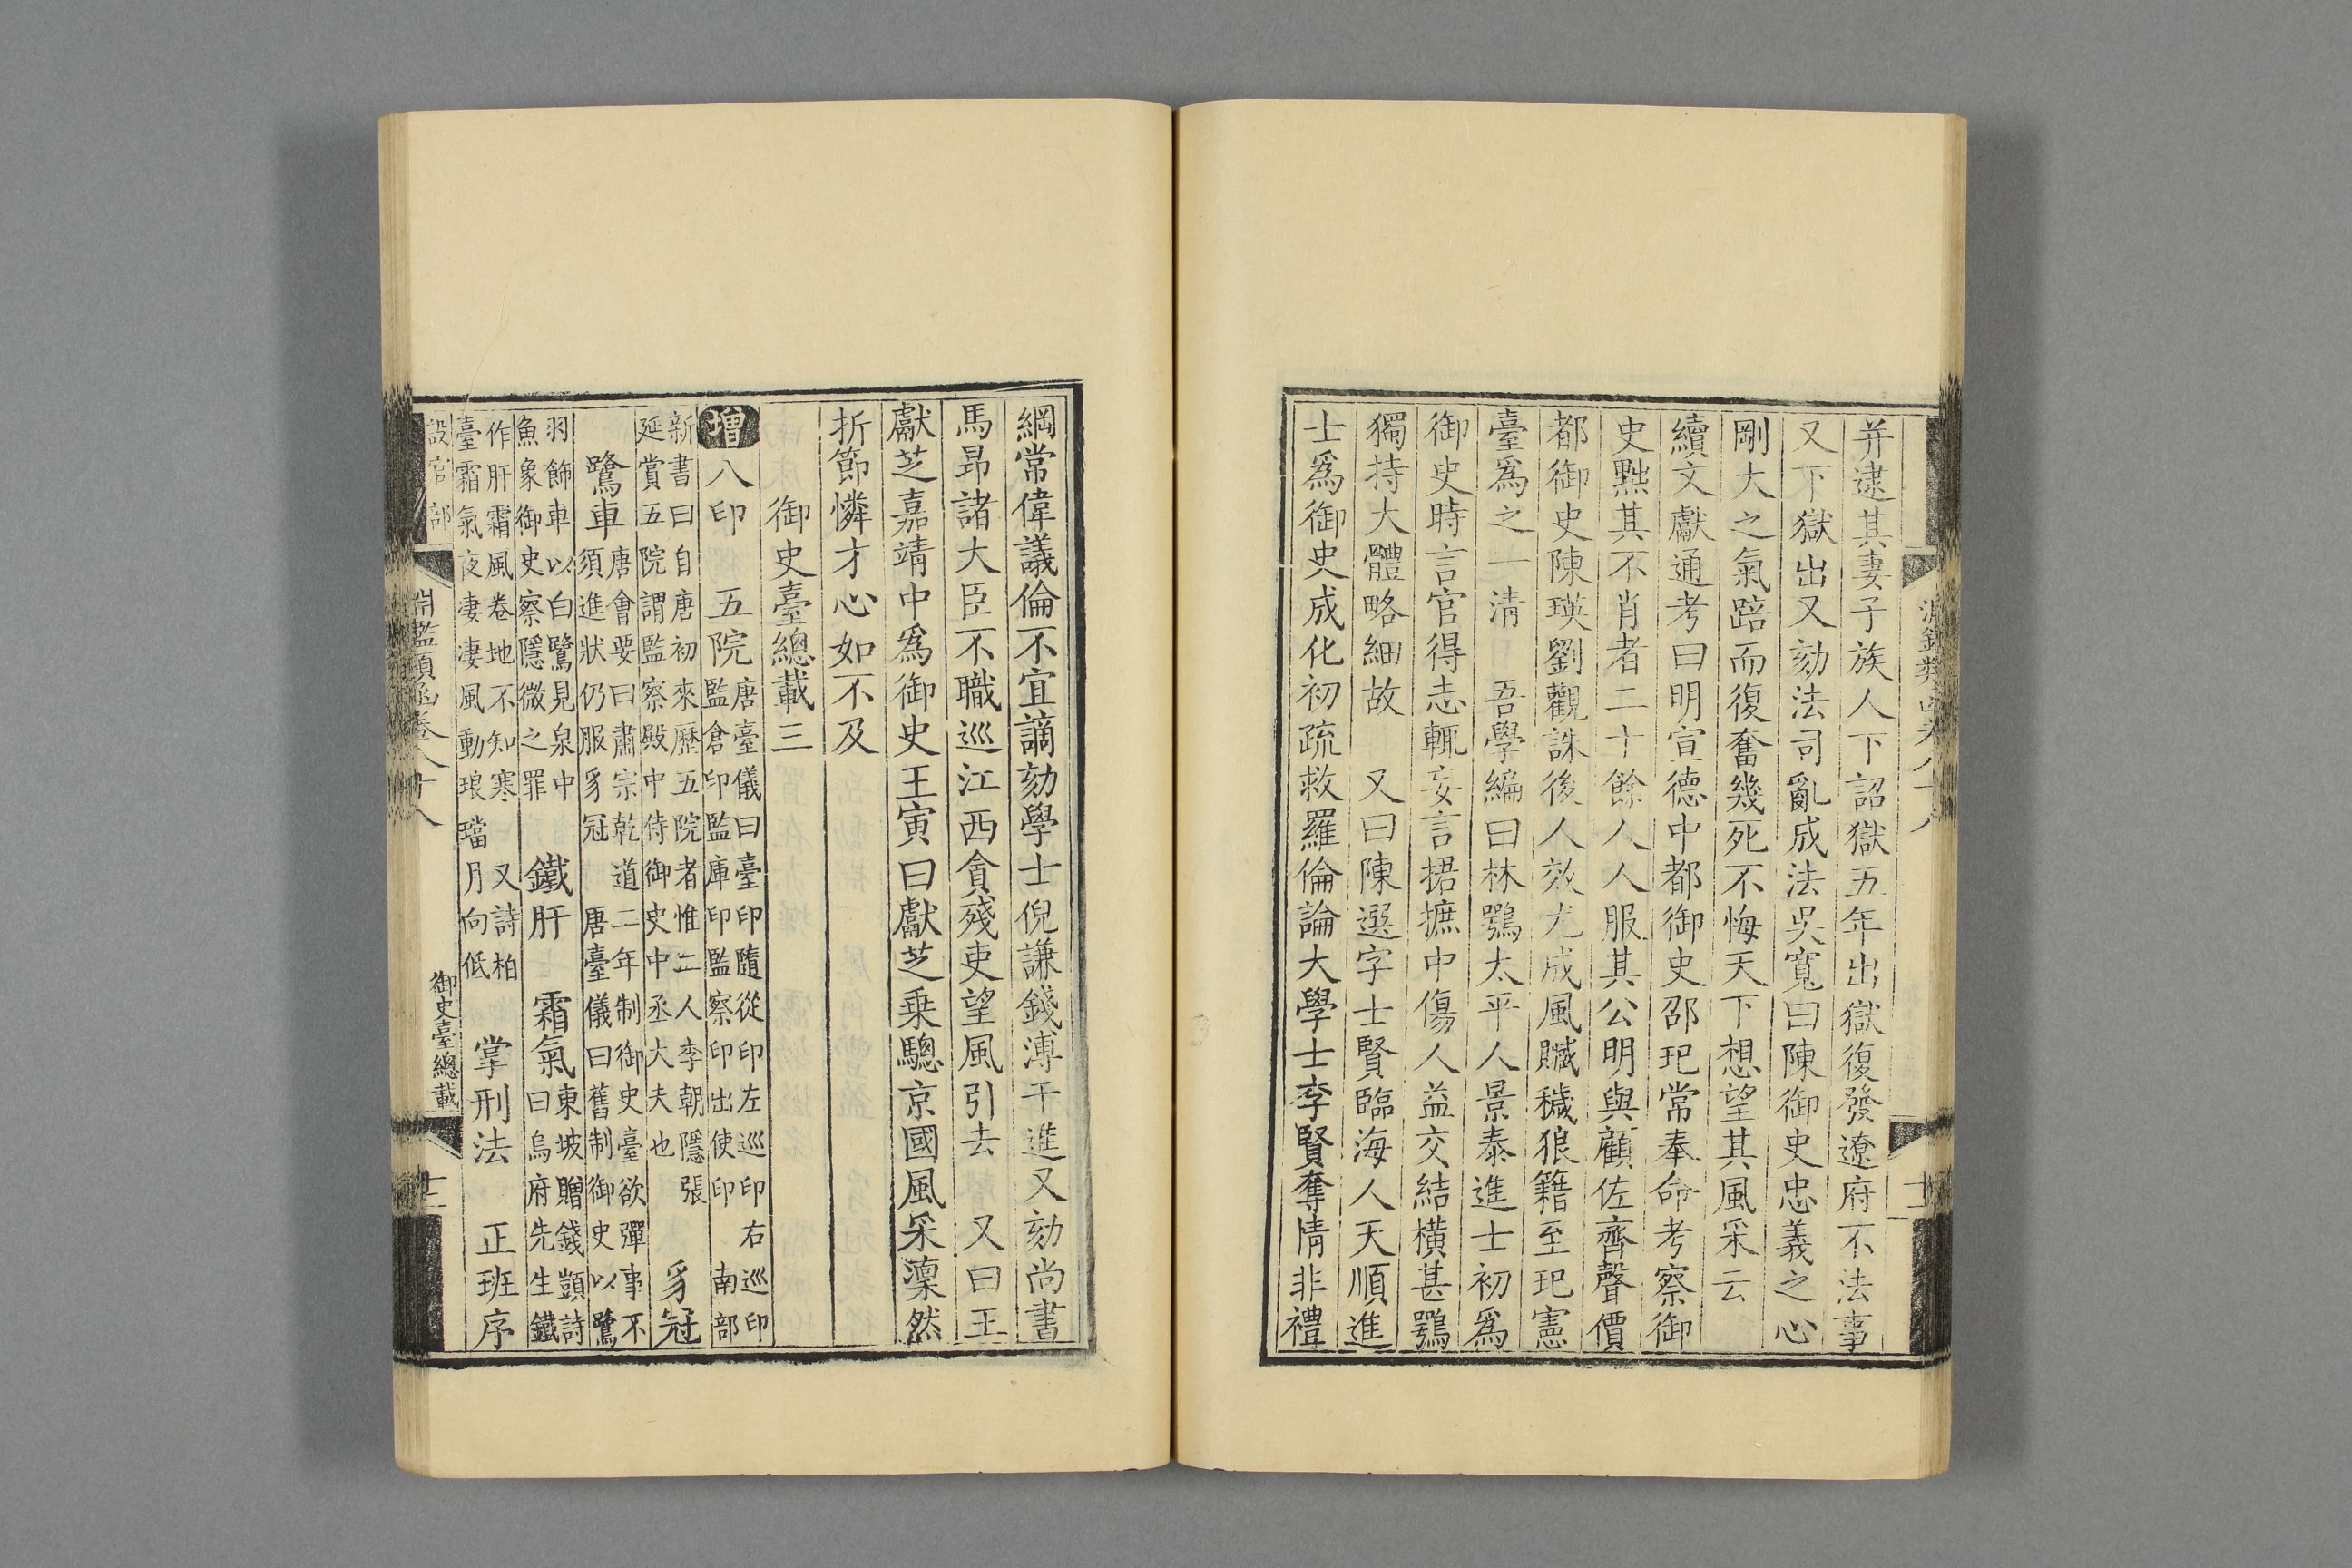 淵鑑類函卷八十八
幷逮其妻子族人下詔獄五年出獄復發遼府不法事
又下獄出又劾法司亂成法吳寬曰陳御史忠義之心
剛大之氣踣而復奮幾死不悔天下想望其風采云
續文獻通考曰明宣德中都御史邵玘常奉命考察御
史黜其不肖者二十餘人人服其公明與顧佐齊聲價
都御史陳瑛劉觀誅後人效尤成風贓穢狼籍至玘憲
臺爲之一清 吾學編曰林鶚太平人景泰進士初爲
御史時言官得志輒妄言捃摭中傷人益交結橫甚鶚
獨持大體略細故 又曰陳選字士賢臨海人天順進
士爲御史成化初疏救羅倫論大學士李賢奪情非禮
綱常偉議倫不宜謫劾學士倪謙錢溥干進又劾尚書
馬昂諸大臣不職巡江西貪殘吏望風引去 又曰王
獻芝嘉靖中爲御史王寅曰獻芝乗驄京國風采凜然
折節憐才心如不及
御史臺總載三
增 八印 五院 唐臺儀曰臺印隨從印左巡印右巡印
監倉印監庫印監察印出使印 南部
新書曰自唐初來歷五院者惟二人李朝隱張
延賞五院謂監察殿中侍御史中丞大夫也 豸冠
鷺車 唐會要曰肅宗乾道二年制御史臺欲彈事不
須進狀仍服豸冠 唐臺儀曰舊制御史以鷺
羽飾車以白鷺見泉中
魚象御史察隱微之罪 鐵肝 霜氣 東坡贈錢顗詩
曰烏府先生鐵
作肝霜風卷地不知寒 又詩柏
臺霜氣夜凄凄風動琅璫月向低 掌刑法 正班序
設官部 淵鑑類函卷八十八 御史臺總載 十二